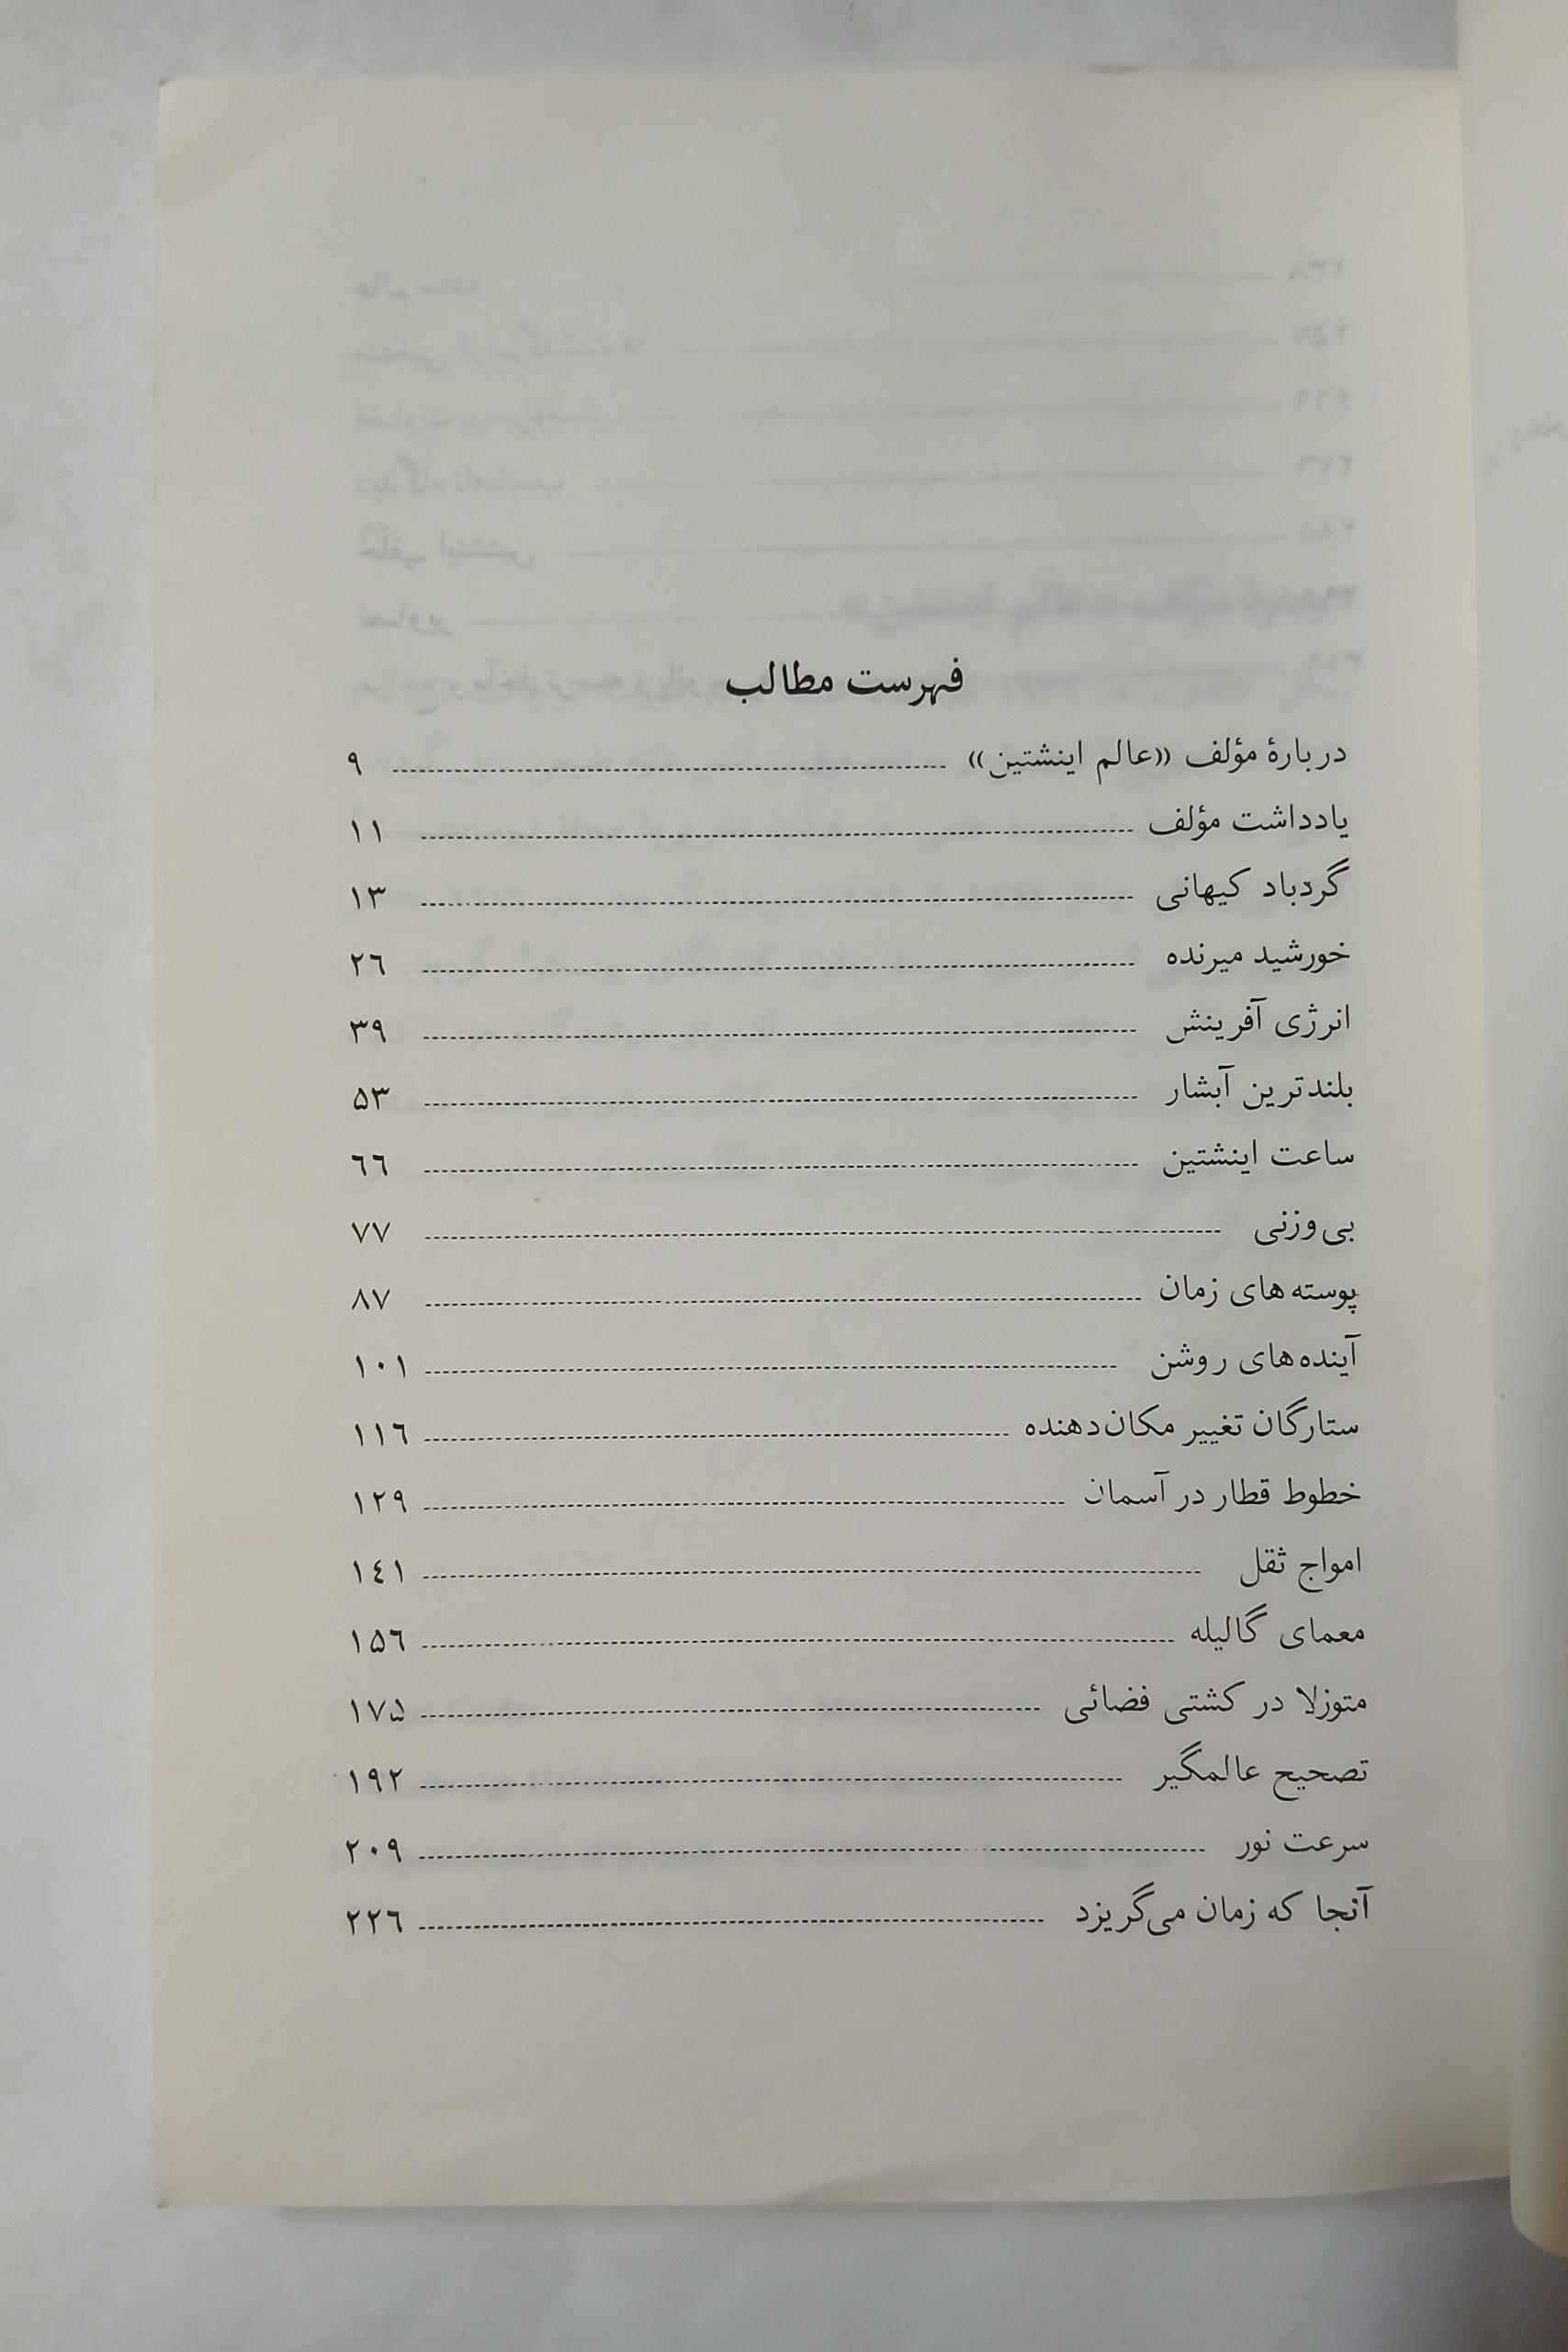 فهرست مطالب
دربارهٔ مؤلف «عالم اینشتین» ۹
یادداشت مؤلف ۱۱
گردباد کیهانی ۱۳
خورشید میرنده ۲۶
انرژی آفرینش ۳۹
بلندترین آبشار ۵۳
ساعت اینشتین ۶۶
بی‌وزنی ۷۷
پوسته‌های زمان ۸۷
آینده‌های روشن ۱۰۱
ستارگان تغییر مکان‌دهنده ۱۱۶
خطوط قطار در آسمان ۱۲۹
امواج ثقل ۱۴۱
معمای گالیله ۱۵۶
متوزلا در کشتی فضائی ۱۷۵
تصحیح عالمگیر ۱۹۲
سرعت نور ۲۰۹
آنجا که زمان می‌گریزد ۲۲۶